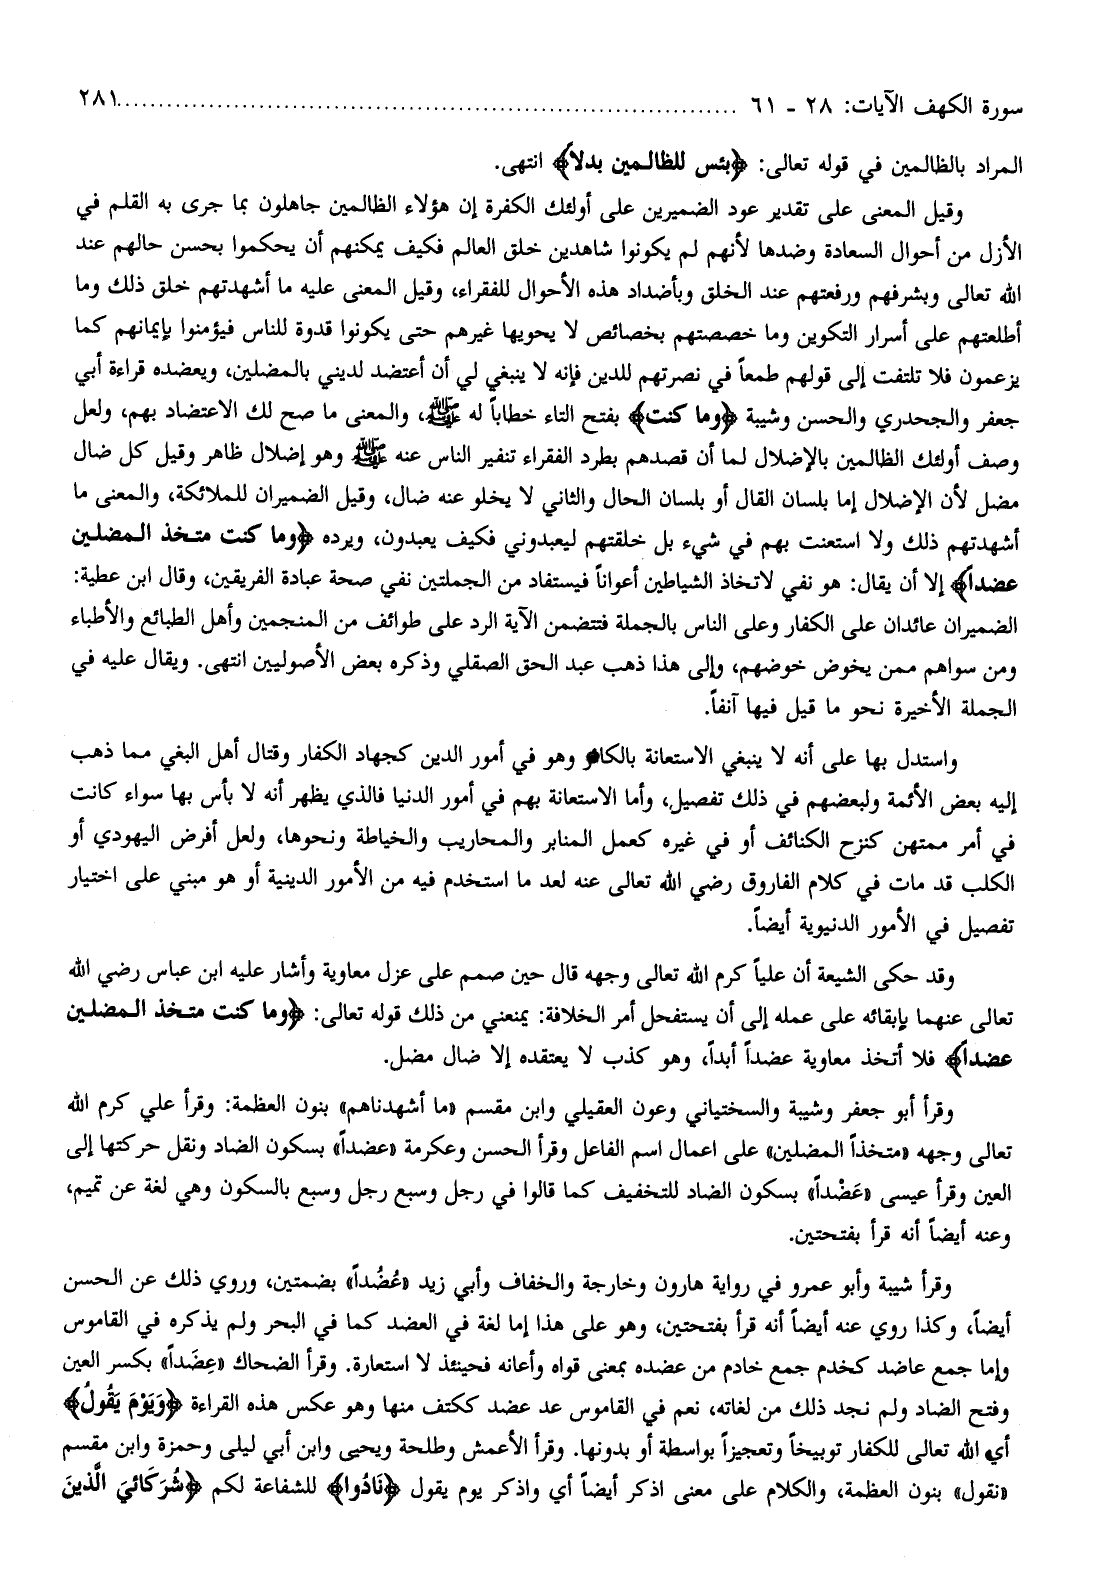 سورة الكهف الآيات: ٢٨ ـ ٦١ ........................................................................... ٢٨١
المراد بالظالمين في قوله تعالى: ﴿بئس للظالمين بدلاً﴾ انتهى.
وقيل المعنى على تقدير عود الضميرين على أولئك الكفرة إن هؤلاء الظالمين جاهلون بما جرى به القلم في
الأزل من أحوال السعادة وضدها لأنهم لم يكونوا شاهدين خلق العالم فكيف يمكنهم أن يحكموا بحسن حالهم عند
الله تعالى وبشرفهم ورفعتهم عند الخلق وبأضداد هذه الأحوال للفقراء، وقيل المعنى عليه ما أشهدتهم خلق ذلك وما
أطلعتهم على أسرار التكوين وما خصصتهم بخصائص لا يحويها غيرهم حتى يكونوا قدوة للناس فيؤمنوا بإيمانهم كما
يزعمون فلا تلتفت إلى قولهم طمعاً في نصرتهم للدين فإنه لا ينبغي لي أن أعتضد لديني بالمضلين، ويعضده قراءة أبي
جعفر والجحدري والحسن وشيبة ﴿وما كنت﴾ بفتح التاء خطاباً له ﷺ، والمعنى ما صح لك الاعتضاد بهم، ولعل
وصف أولئك الظالمين بالإضلال لما أن قصدهم بطرد الفقراء تنفير الناس عنه ﷺ وهو إضلال ظاهر وقيل كل ضال
مضل لأن الإضلال إما بلسان القال أو بلسان الحال والثاني لا يخلو عنه ضال، وقيل الضميران للملائكة، والمعنى ما
أشهدتهم ذلك ولا استعنت بهم في شيء بل خلقتهم ليعبدوني فكيف يعبدون، ويرده ﴿وما كنت متخذ المضلين
عضداً﴾ إلا أن يقال: هو نفي لاتخاذ الشياطين أعواناً فيستفاد من الجملتين نفي صحة عبادة الفريقين، وقال ابن عطية:
الضميران عائدان على الكفار وعلى الناس بالجملة فتتضمن الآية الرد على طوائف من المنجمين وأهل الطبائع والأطباء
ومن سواهم ممن يخوض خوضهم، وإلى هذا ذهب عبد الحق الصقلي وذكره بعض الأصوليين انتهى. ويقال عليه في
الجملة الأخيرة نحو ما قيل فيها آنفاً.
واستدل بها على أنه لا ينبغي الاستعانة بالكافر وهو في أمور الدين كجهاد الكفار وقتال أهل البغي مما ذهب
إليه بعض الأئمة ولبعضهم في ذلك تفصيل، وأما الاستعانة بهم في أمور الدنيا فالذي يظهر أنه لا بأس بها سواء كانت
في أمر ممتهن كنزح الكنائف أو في غيره كعمل المنابر والمحاريب والخياطة ونحوها، ولعل أفرض اليهودي أو
الكلب قد مات في كلام الفاروق رضي الله تعالى عنه لعد ما استخدم فيه من الأمور الدينية أو هو مبني على اختيار
تفصيل في الأمور الدنيوية أيضاً.
وقد حكى الشيعة أن علياً كرم الله تعالى وجهه قال حين صمم على عزل معاوية وأشار عليه ابن عباس رضي الله
تعالى عنهما بإبقائه على عمله إلى أن يستفحل أمر الخلافة: يمنعني من ذلك قوله تعالى: ﴿وما كنت متخذ المضلين
عضداً﴾ فلا أتخذ معاوية عضداً أبداً، وهو كذب لا يعتقده إلا ضال مضل.
وقرأ أبو جعفر وشيبة والسختياني وعون العقيلي وابن مقسم «ما أشهدناهم» بنون العظمة: وقرأ علي كرم الله
تعالى وجهه «متخذاً المضلين» على اعمال اسم الفاعل وقرأ الحسن وعكرمة «عضداً» بسكون الضاد ونقل حركتها إلى
العين وقرأ عيسى «عَضْداً» بسكون الضاد للتخفيف كما قالوا في رجل وسبع رجل وسبع بالسكون وهي لغة عن تميم،
وعنه أيضاً أنه قرأ بفتحتين.
وقرأ شيبة وأبو عمرو في رواية هارون وخارجة والخفاف وأبي زيد «عُضُداً» بضمتين، وروي ذلك عن الحسن
أيضاً، وكذا روي عنه أيضاً أنه قرأ بفتحتين، وهو على هذا إما لغة في العضد كما في البحر ولم يذكره في القاموس
وإما جمع عاضد كخدم جمع خادم من عضده بمعنى قواه وأعانه فحينئذ لا استعارة. وقرأ الضحاك «عِضَداً» بكسر العين
وفتح الضاد ولم نجد ذلك من لغاته، نعم في القاموس عد عضد ككتف منها وهو عكس هذه القراءة ﴿وَيَوْمَ يَقُولُ﴾
أي الله تعالى للكفار توبيخاً وتعجيزاً بواسطة أو بدونها. وقرأ الأعمش وطلحة ويحيى وابن أبي ليلى وحمزة وابن مقسم
«نقول» بنون العظمة، والكلام على معنى اذكر أيضاً أي واذكر يوم يقول ﴿نَادُوا﴾ للشفاعة لكم ﴿شُرَكَائيَ الَّذينَ